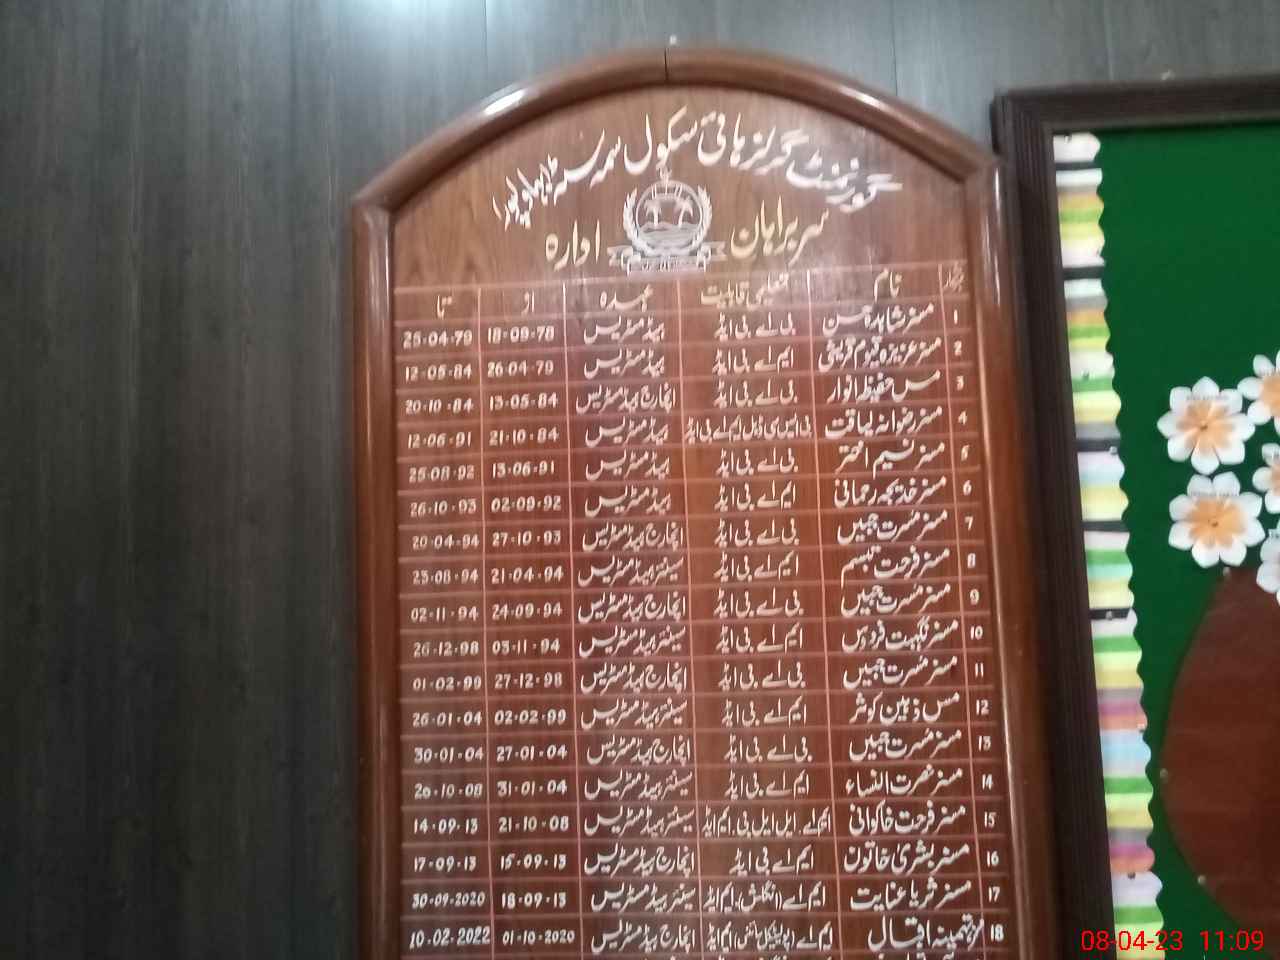 گورنمنٹ گرلز ہائی سکول سمہ سٹہ بہاولپور
سربراہان ادارہ
نمبرشمار نام تعلیمی قابلیت عہدہ از تا
1 مسز شاہدہ حسن بی اے بی ایڈ ہیڈ مسٹریس 18-09-78 25-04-79
2 مسز عزیزہ قیوم قریشی ایم اے بی ایڈ ہیڈ مسٹریس 26-04-79 12-05-84
3 مس حفیظ انوار بی اے بی ایڈ انچارج ہیڈ مسٹریس 13-05-84 20-10-84
4 مسز رضوانہ لیاقت بی ایس سی ڈبل ایم اے بی ایڈ ہیڈ مسٹریس 21-10-84 12-06-91
5 مسز نسیم اختر بی اے بی ایڈ ہیڈ مسٹریس 13-06-91 25-08-92
6 مسز خدیجہ رحمانی ایم اے بی ایڈ ہیڈ مسٹریس 02-09-92 26-10-93
7 مسز مسرت جبیں بی اے بی ایڈ انچارج ہیڈ مسٹریس 27-10-93 20-04-94
8 مسز فرحت تبسم ایم اے بی ایڈ سینئر ہیڈ مسٹریس 21-04-94 23-08-94
9 مسز مسرت جبیں بی اے بی ایڈ انچارج ہیڈ مسٹریس 24-09-94 02-11-94
10 مسز نگہت فردوس ایم اے بی ایڈ سینئر ہیڈ مسٹریس 03-11-94 26-12-98
11 مسز مسرت جبیں بی اے بی ایڈ انچارج ہیڈ مسٹریس 27-12-98 01-02-99
12 مس ذہین کوثر ایم اے بی ایڈ سینئر ہیڈ مسٹریس 02-02-99 26-01-04
13 مسز مسرت جبیں بی اے بی ایڈ انچارج ہیڈ مسٹریس 27-01-04 30-01-04
14 مسز نصرت النساء ایم اے بی ایڈ سینئر ہیڈ مسٹریس 31-01-04 20-10-08
15 مسز فرحت خاکوانی ایم اے. ایل ایل بی. ایم ایڈ سینئر ہیڈ مسٹریس 21-10-08 14-09-13
16 مسز بشریٰ خاتون ایم اے بی ایڈ انچارج ہیڈ مسٹریس 15-09-13 17-09-13
17 مسز ثریا عنایت ایم اے (انگلش) ایم ایڈ سینئر ہیڈ مسٹریس 18-09-13 30-09-2020
18 مسز تہمینہ اقبال ایم اے (پولیٹیکل سائنس) ایم ایڈ انچارج ہیڈ مسٹریس 01-10-2020 10-02-2022
08-04-23 11:09